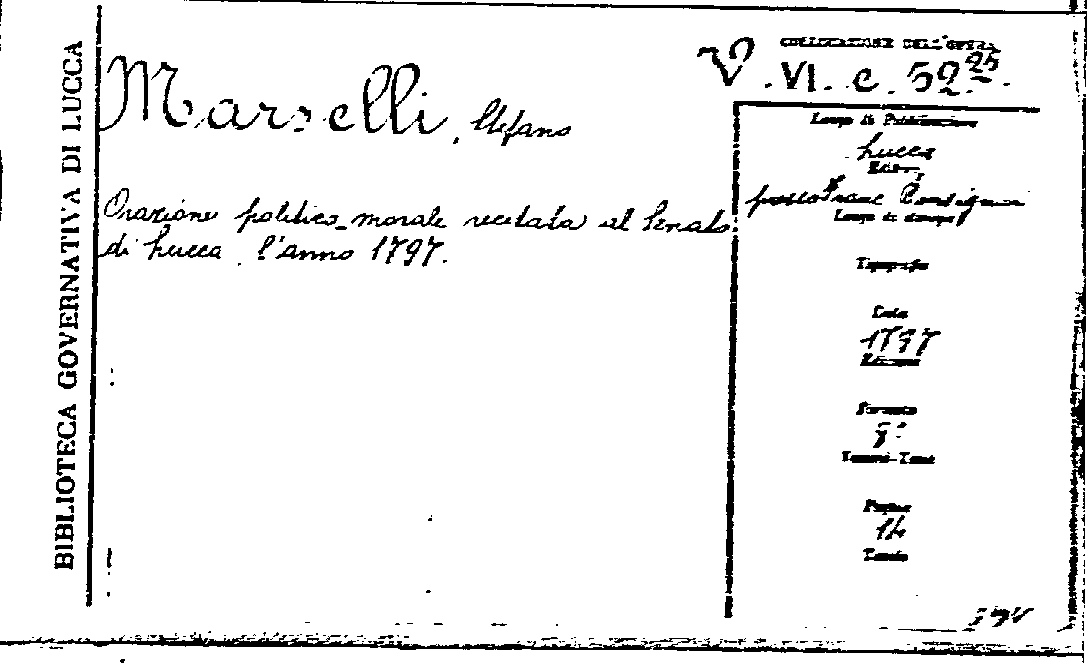 BIBLIOTECA GOVERNATIVA DI LUCCA
Marselli, Stefano
Orazione politico-morale recitata al Senato
di Lucca l'anno 1797.
COLLOCAZIONE DELL'OPERA
V. VI. c. 52 25.
Luogo di Pubblicazione
Lucca
presso Franc
Luogo di stampa
Tipografia
Data
1797
Edizione
Formato
8°
Pagine
14
Tavole